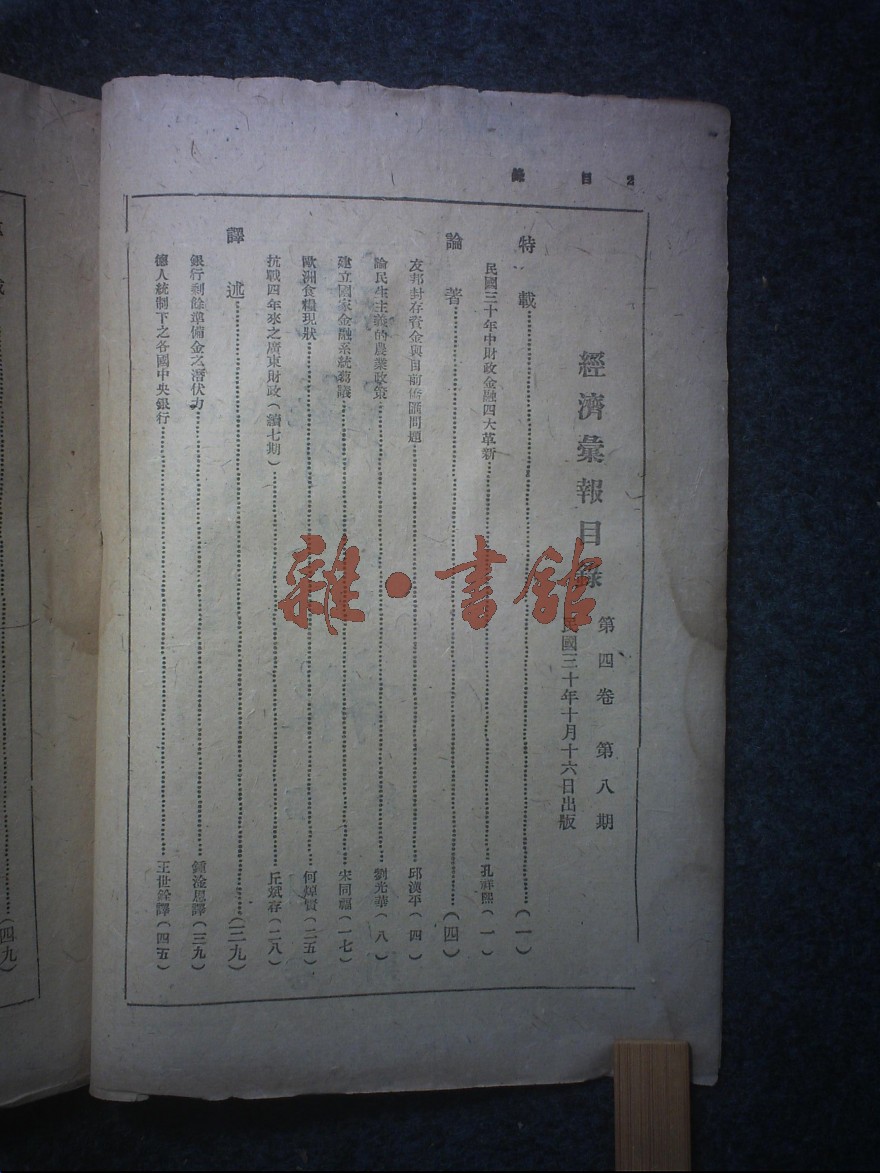 目錄 2
經濟彙報目錄
第四卷 第八期
民國三十年十月十六日出版
特載……(一)
民國三十年中財政金融四大革新……孔祥熙(一)
論著……(四)
友邦封存資金與目前僑匯問題……邱漢平(四)
論民生主義的農業政策……劉光華(八)
建立國家金融系統芻議……宋同福(一七)
歐洲食糧現狀……何焯賢(二五)
抗戰四年來之廣東財政(續七期)……丘斌存(二八)
譯述……(三九)
銀行剩餘準備金之潛伏力……鍾淦恩譯(三九)
德人統制下之各國中央銀行……王世銓譯(四五)
載……(四九)
雜·書舘